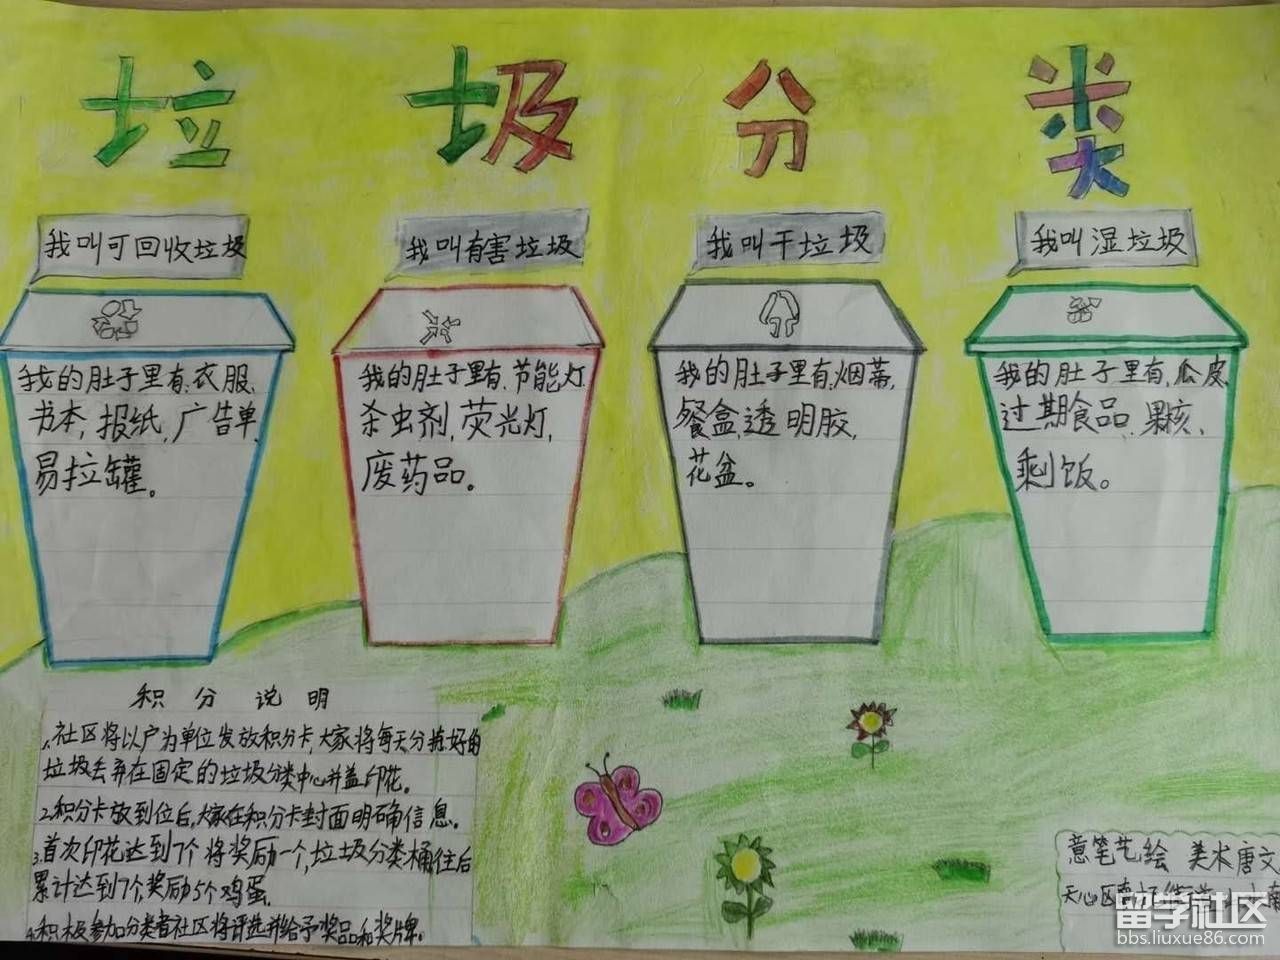 垃圾分类
我叫可回收垃圾
我叫有害垃圾
我叫干垃圾
我叫湿垃圾
我的肚子里有,衣服、
书本,报纸,广告单、
易拉罐。
我的肚子里有,节能灯
杀虫剂,荧光灯,
废药品。
我的肚子里有,烟蒂,
餐盒,透明胶,
花盆。
我的肚子里有,瓜皮
过期食品、果核、
剩饭。
积分说明
1.社区将以户为单位发放积分卡,大家将每天分捡好的
垃圾丢弃在固定的垃圾分类中心并盖印花。
2.积分卡放到位后,大家在积分卡封面明确信息。
3.首次印花达到7个将奖励一个,垃圾分类桶往后
累计达到7个,奖励5个鸡蛋.
4.积极参加分类者社区将评选并给予奖品和奖牌。
意笔艺绘 美术唐文
天心区
留学社区
bbs.liuxue86.com